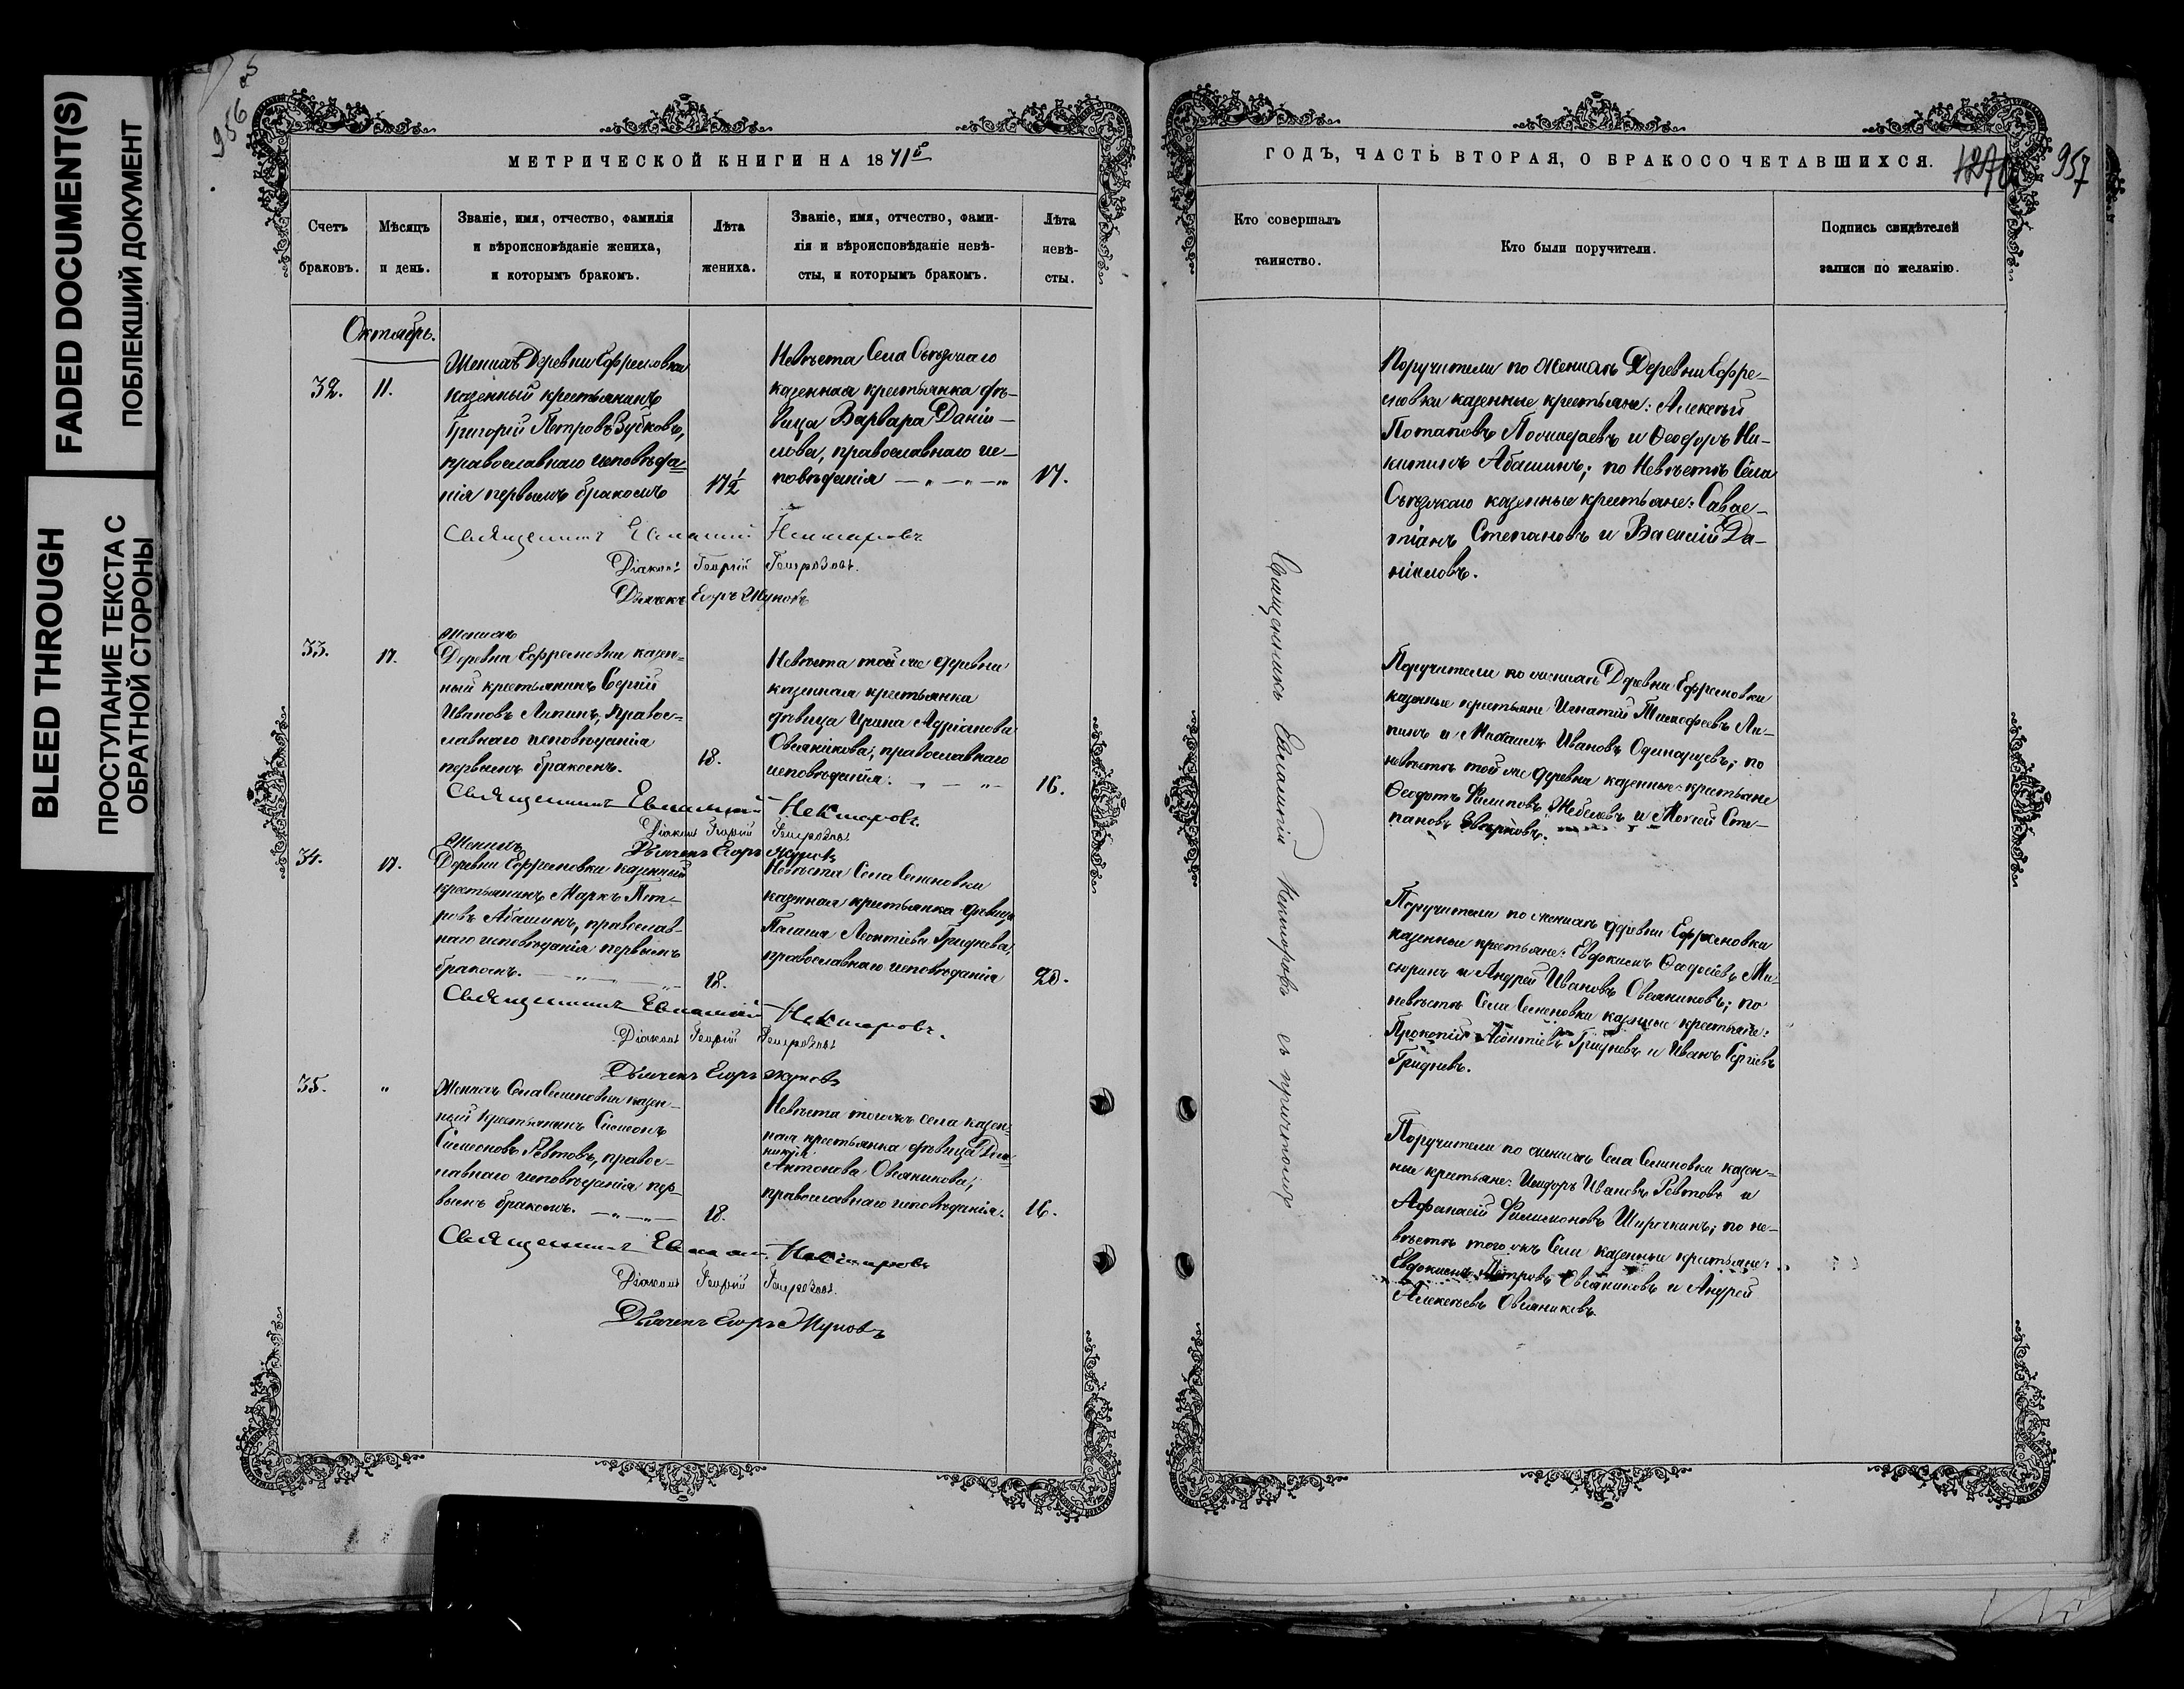 FADED DOCUMENT(S)
ПОБЛЕКШИЙ ДОКУМЕНТ
BLEED THROUGH
ПРОСТУПАНИЕ ТЕКСТА С
ОБРАТНОЙ СТОРОНЫ
956
МЕТРИЧЕСКОЙ КНИГИ НА 1871
Счетъ
браковъ.
Мѣсяцъ
и день.
Званіе, имя, отчество, фамилія
и вѣроисповѣданіе жениха,
и которымъ бракомъ.
Лѣта
жениха.
Званіе, имя, отчество, фами-
лія и вѣроисповѣданіе невѣ-
сты, и которымъ бракомъ.
Лѣта
невѣ-
сты.
Октябрь.
32.
11.
Женихъ Деревни Ефремовки
казенный крестьянинъ
Григорій Петровъ Зубковъ,
православнаго исповѣда=
нія первымъ бракомъ
17½
Невѣста Села Съѣзжаго
казенная крестьянка дѣ-
вица Варвара Даніи-
лова, православнаго ис-
повѣданія
17.
Священникъ Евлампій Нектаровъ
Діаконъ Георгій
Дьячекъ Егоръ Жуковъ
33.
17.
Женихъ
Деревни Ефремовки казен=
ный крестьянинъ Сергій
Ивановъ Липинъ, Правос=
лавнаго исповѣданія
первымъ бракомъ.
18.
Невѣста той же деревни
казенная крестьянка
дѣвица Ирина Адріанова
Овсянікова, православнаго
исповѣданія.
16.
Священникъ Евлампій Нектаровъ.
Діаконъ Георгій
Дьячекъ Егоръ Жуковъ
34.
17.
Женихъ
Деревни Ефремовки казенный
крестьянинъ Маркъ Пет-
ровъ Абашинъ, православ-
наго исповѣданія первымъ
бракомъ.
18.
Невѣста Села Семеновки
казенная крестьянка дѣвица
Леонтіева Гриднева,
православнаго исповѣданія
20.
Священникъ Евлампій Нектаровъ.
Діаконъ Георгій
Дьячекъ Егоръ Жуковъ
35.
"
Женихъ Села Семеновки казен-
ный крестьянинъ Симеонъ
Симеоновъ Ревтовъ, правос-
лавнаго исповѣданія пер-
вымъ бракомъ.
18.
Невѣста тогожъ села казен=
ная крестьянка дѣвица
Антонова Овсяникова,
православнаго исповѣданія.
16.
Священникъ Евлампій Нектаровъ
Діаконъ Георгій
Дьячекъ Егоръ Жуковъ
ГОДЪ, ЧАСТЬ ВТОРАЯ, О БРАКОСОЧЕТАВШИХСЯ.
957
Кто совершалъ
таинство.
Кто были поручители.
Подпись свидѣтелей
записи по желанію.
Священникъ Евлампій Нектаровъ съ причтомъ
Поручители по Женихѣ Деревни Ефре-
мовки казенные крестьяне: Алексѣй
Потаповъ и Ѳеодоръ Ни-
китинъ Абашинъ; по Невѣстѣ Села
Съѣзжаго казенные крестьяне: Савас-
тіанъ Степановъ и Василій Да-
ніиловъ.
Поручители по женихѣ Деревни Ефремовки
казенные крестьяне Игнатій Тимофеевъ Ли-
пинъ и Михаилъ Ивановъ Одинацевъ; по
невѣстѣ той же деревни казенные крестьяне
Ѳеодотъ Филиповъ Жебелевъ и Мокей Сте-
пановъ
Поручители по женихѣ деревни Ефремовки
казенные крестьяне: Евдокимъ Ѳадѣевъ Ми-
сюринъ и Андрей Ивановъ Овсяниковъ; по
невѣстѣ Села Семеновки казенные крестьяне:
Прокопій Леонтіевъ Гридневъ и Иванъ Сергіевъ
Гридневъ.
Поручители по женихѣ Села Семеновки казен=
ные крестьяне: Исидоръ Ивановъ Ревтовъ и
Афанасій Филимоновъ Широкинъ; по не-
вѣстѣ того жъ Села казенные крестьяне:
Евдокимъ Петровъ Овсяниковъ и Андрей
Алексѣевъ Овсяниковъ.